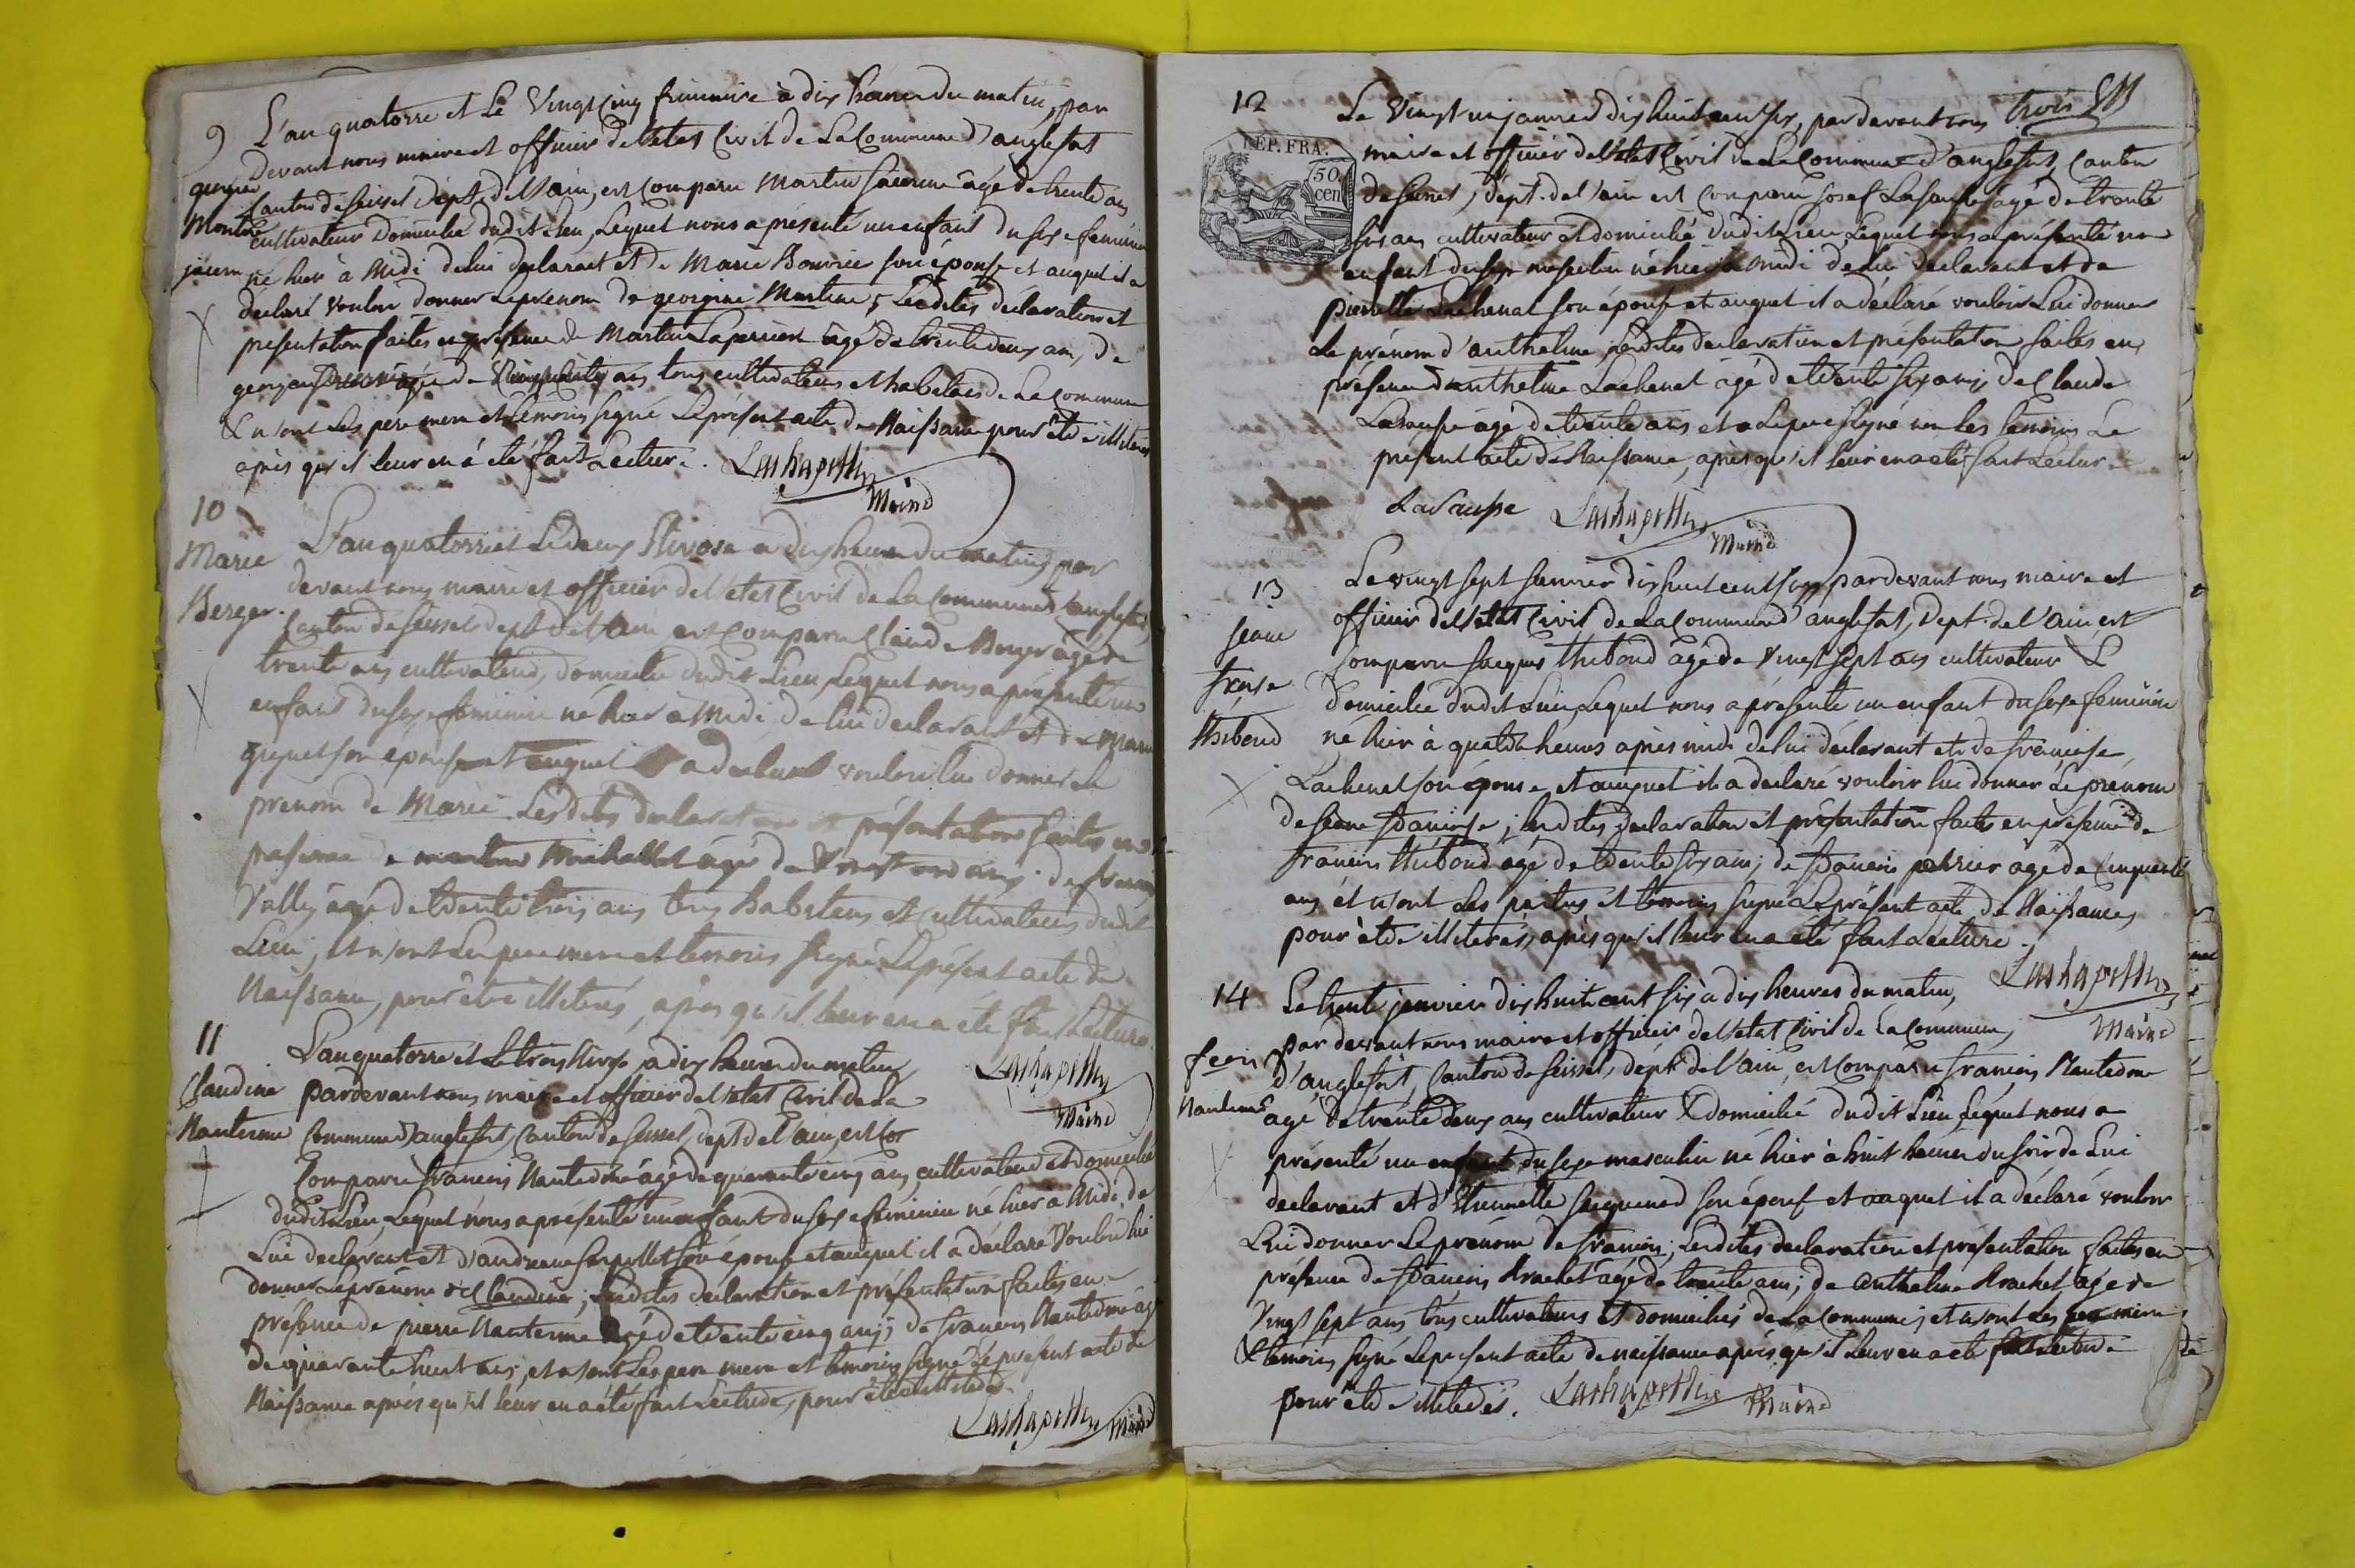 9
L'an quatorze et Le Vingt cinq frimaire à dix heures du matin, par
devant nous maire et officier de l'etat Civil de La Commune d'anglefort
Canton de seissel Dépt. de l'ain, est Comparu Martin age de trente ans
cultivateur Domicilié dudit Lieu, Lequel nous a présenté un enfant du sexe feminin
né hier à Midi de lui declarant et de Marie son épouse et auquel il a
declaré vouloir donner Le prénom de georgine Martine, Lesdites déclaration et
presentation faites en présence de Martin agé de trente deux ans, de
agé de ans tous cultivateurs et habitans de La Commune
& n'ont Les pere mere et témoins signé Le présent acte de Naissance pour être illiterés
après qu'il leur en à été fait Lecture.
Maire
10
Marie
Berger.
L'an quatorze et Le deux Nivose a dix heures du matin, par
devant nous maire et officier de l'etat Civil de La Commune d'anglefort,
Canton de seissel dept. de l'ain, est Comparu Claude Berger agé de
trente ans cultivateur, domicilié dudit Lieu, Lequel nous a présenté un
enfant du sexe feminin né hier à Midi de lui declarant et de Marie
son épouse et auquel il a declaré vouloir lui donner le
prénom de Marie Lesdites declaration et présentation faites en
présence de agé de ans. de francois
Vally agé de trente trois ans tous habitans et Cultivateurs dudit
Lieu; et n'ont Les pere mere et temoins signé Le présent acte de
Naissance, pour être illiterés, après qu'il leur en a été fait Lecture.
Maire
11
Claudine
Nanterme
L'an quatorze et Le trois Nivose a dix heures du matin
pardevant nous maire et officier de l'etat Civil de La
Commune d'anglefort, Canton de seissel, dept. de l'ain, est Co
Comparu francois Nanterme agé de quarante cinq ans cultivateur et domicilié
dudit Lieu, Lequel nous a présenté un enfant du sexe feminin né hier à Midi de
Lui declarant et d'andreane son épouse et auquel il a déclaré Vouloir lui
donner Le prénom de Claudine; Lesdites declaration et présentation faites en
présence de pierre Nanterme agé de trente cinq ans; de francois Nanterme agé
de quarante huit ans, et n'ont Les pere mere et témoins signé Le present acte de
Naissance après qu'il leur en a été fait Lecture, pour être illiterés.
Maire
12
trois
REP. FRA.
50
cen
Le Vingt un janvier dix huit cent six, par devant nous
maire et officier de l'etat Civil de La Commune d'anglefort, Canton
de seissel, dépt. de l'ain est Comparu Josef Lasausse agé de trente
six ans cultivateur et domicilié dudit Lieu Lequel nous a présenté un
enfant du sexe masculin né hier à midi de lui declarant et de
pierrette Lachenal son épouse et auquel il a déclaré vouloir Lui donner
Le prénom d'anthelme, Lesdites declaration et présentation faites en
présence d'anthelme Lachenal agé de trente six ans, de Claude
Lasausse agé de trente ans et a Le pere signé non les temoins Le
présent acte de Naissance, après qu'il leur en a été fait Lecture
LaSausse
Maire
13
jeane
frense
thiboud
Le vingt sept janvier dix huit cent six, pardevant nous maire et
officier de l'etat Civil de La Commune d'anglefort, Dept. de l'ain, est
Comparu jacques thiboud agé de Vingt sept ans cultivateur &
Domicilié dudit Lieu, Lequel nous a présenté un enfant du sexe feminin
né hier à quatre heures après midi de lui déclarant et de françoise
Lachenal son épouse et auquel il a declaré vouloir lui donner Le prénom
de jeane françoise; Lesdites declaration et présentation faites en présence de
francois thiboud agé de trente six ans; de francois perrier agé de Cinquante
ans et n'ont Les parties et témoins signé Le présent acte de Naissance,
pour être illiterés, après qu'il leur en a été fait Lecture.
Maire
14
Nanterme
Le trente janvier dix huit cent six à dix heures du matin,
par devant nous maire et officier de l'etat Civil de La Commune
d'anglefort, Canton de seissel, dépt. de l'ain, est Comparu francois Nanterme
agé de trente deux ans cultivateur & domicilié dudit Lieu, Lequel nous a
présenté un enfant du sexe masculin né hier à huit heures du soir de Lui
declarant et d'Etiennette son épouse et auquel il a déclaré vouloir
Lui donner Le prénom de francois; Lesdites declaration et présentation faites en
présence de francois Brachet agé de trente ans; de anthelme Brachet agé de
Vingt sept ans tous cultivateurs et domiciliés de La Commune; et n'ont Les pere mere
& temoins signé Le present acte de naissance après qu'il Leur en a été fait Lecture
pour être illiterés.
Maire